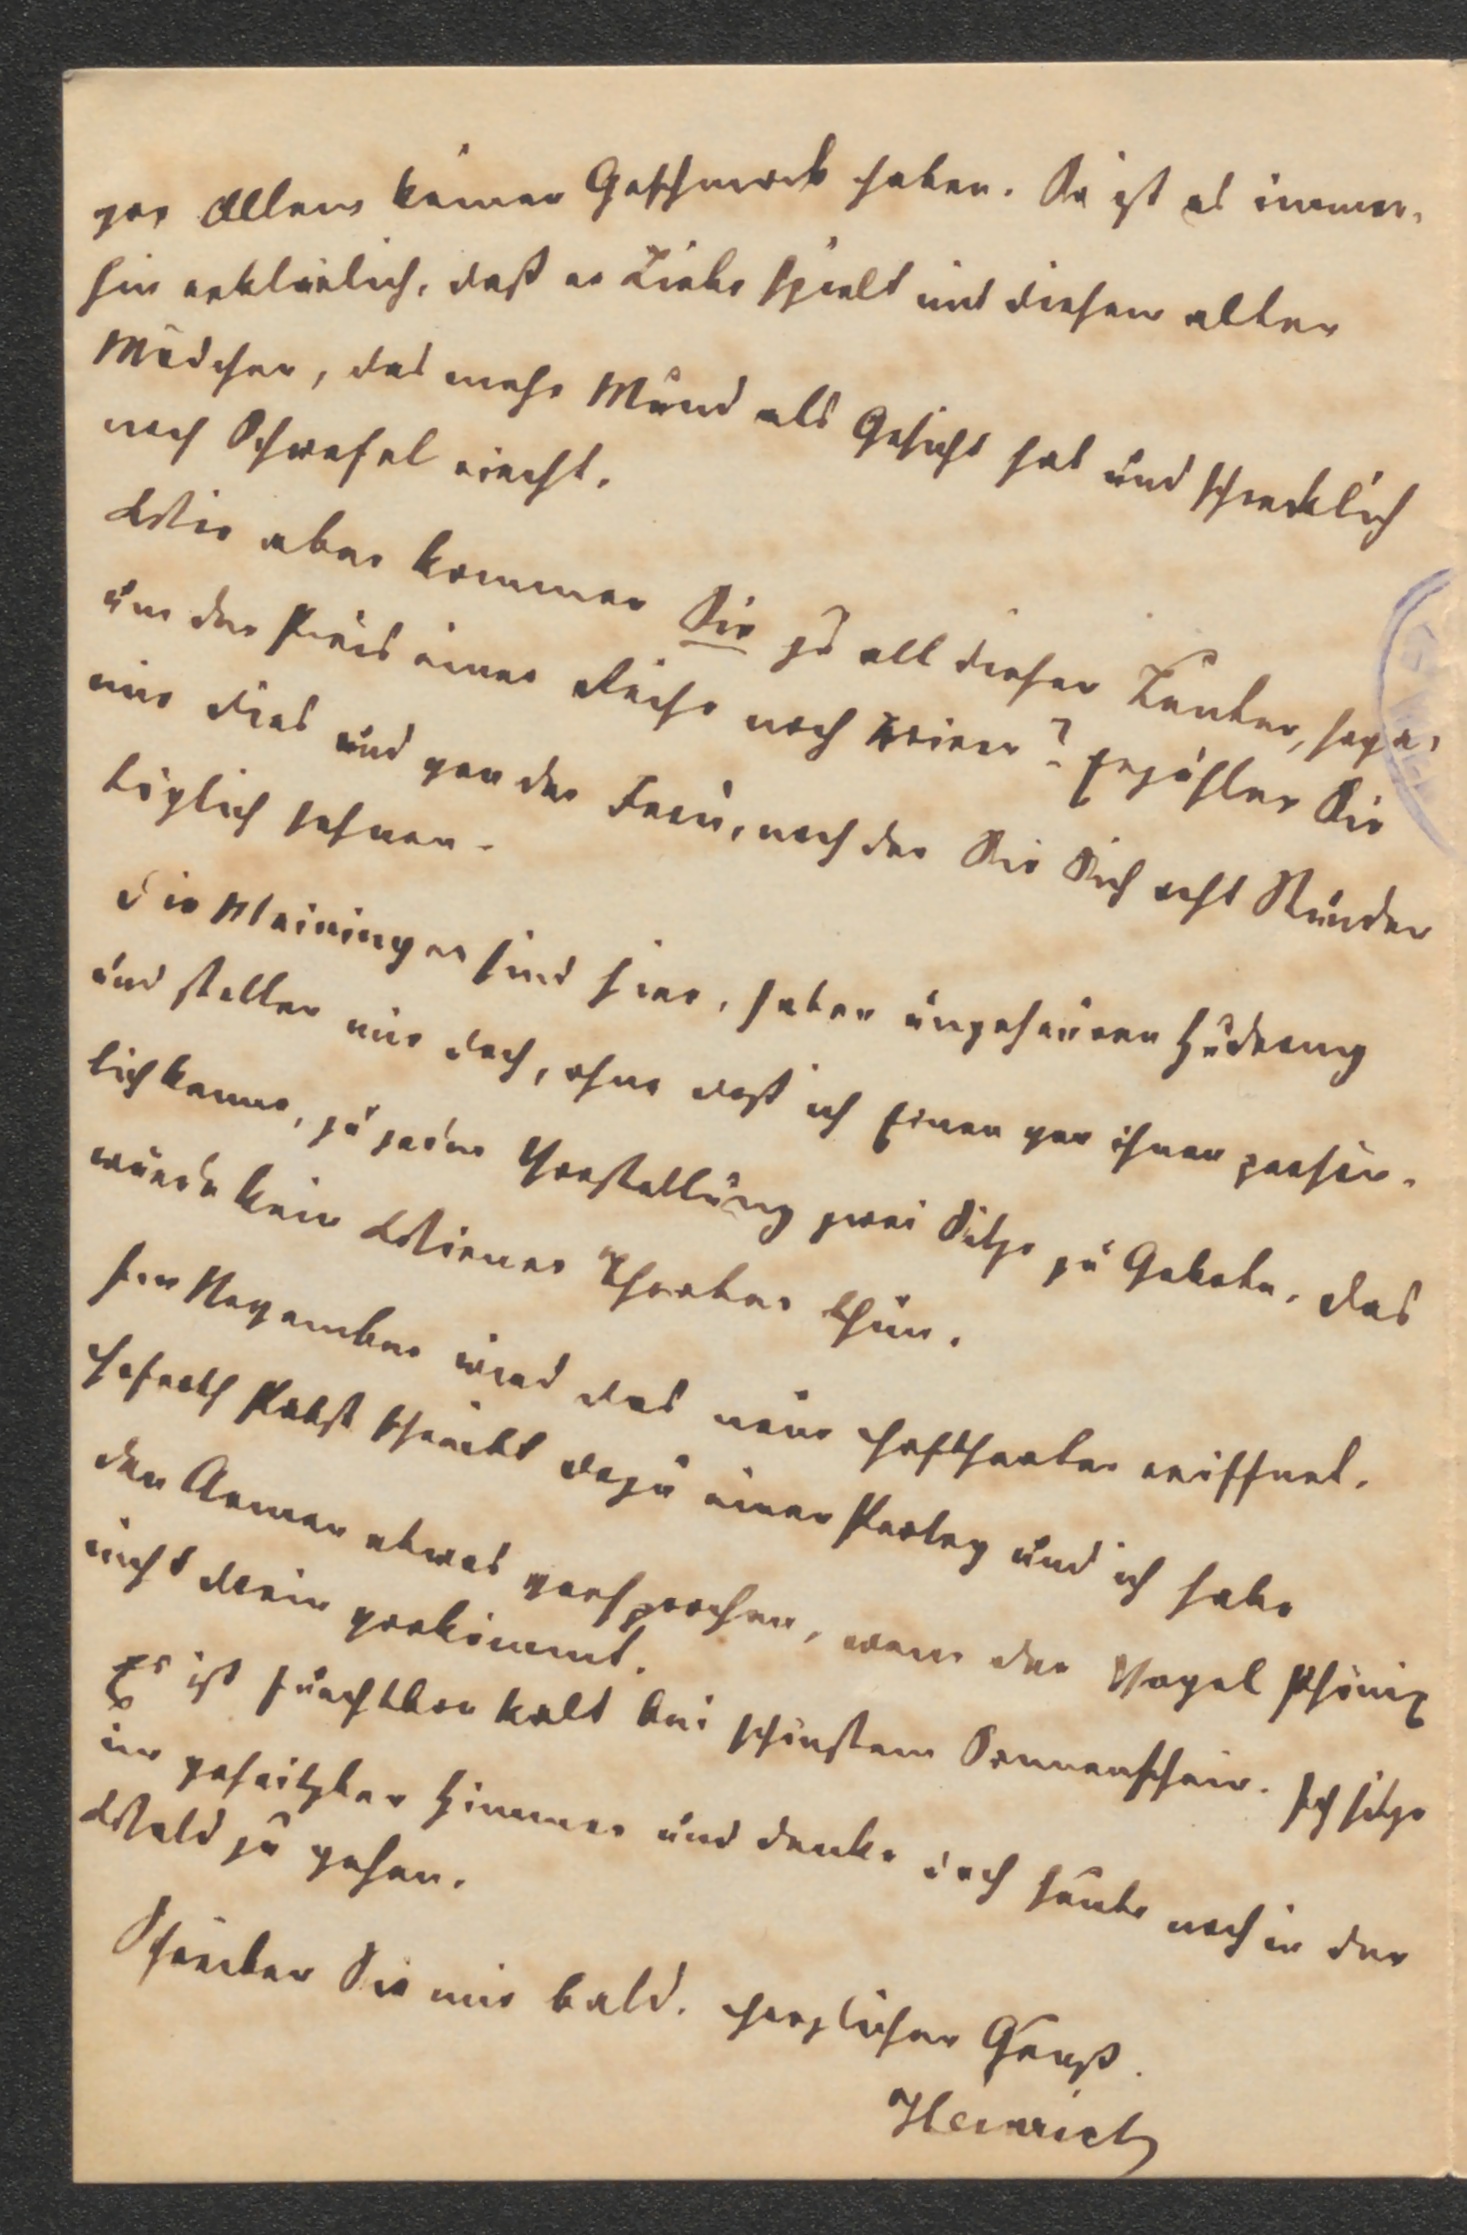 vor Allem keinen Geschmack haben. Da ist es immer-
hin erklärlich, daß er Liebe spielt mit diesem alten
Mädchen, das mehr Mund als Gesicht hat und schrecklich
nach Schwefel riecht.
Wie aber kommen Sie zu all diesen Leuten,
um den Preis einer Reihe noch ? Erzählen Sie
mir dies und von der Frau, nach der Sie Sich acht Stunden
täglich sehnen.
Die Meininger sind hier, haben ungeheuren Zudrang
und stellen mir doch, ohne daß ich Einen von ihnen persön-
lich kenne, zu jeder Vorstellung zwei Sitze zu Gebote. Das
würde kein Wiener Theater thun.
Im November wird das neue Hoftheater eröffnet.
Hofrath Pabst schreibt dazu einen Prolog und ich habe
den Armen etwas versprochen, wenn der Vogel Phönix
nicht drein vorkommt.
Es ist furchtbar kalt bei schönstem Sonnenschein. Ich sitze
im geheitzten Zimmer und denke doch heute noch in den
Wald zu gehen.
Schreiben Sie mir bald. Herzlichen Gruß.
Heinrich